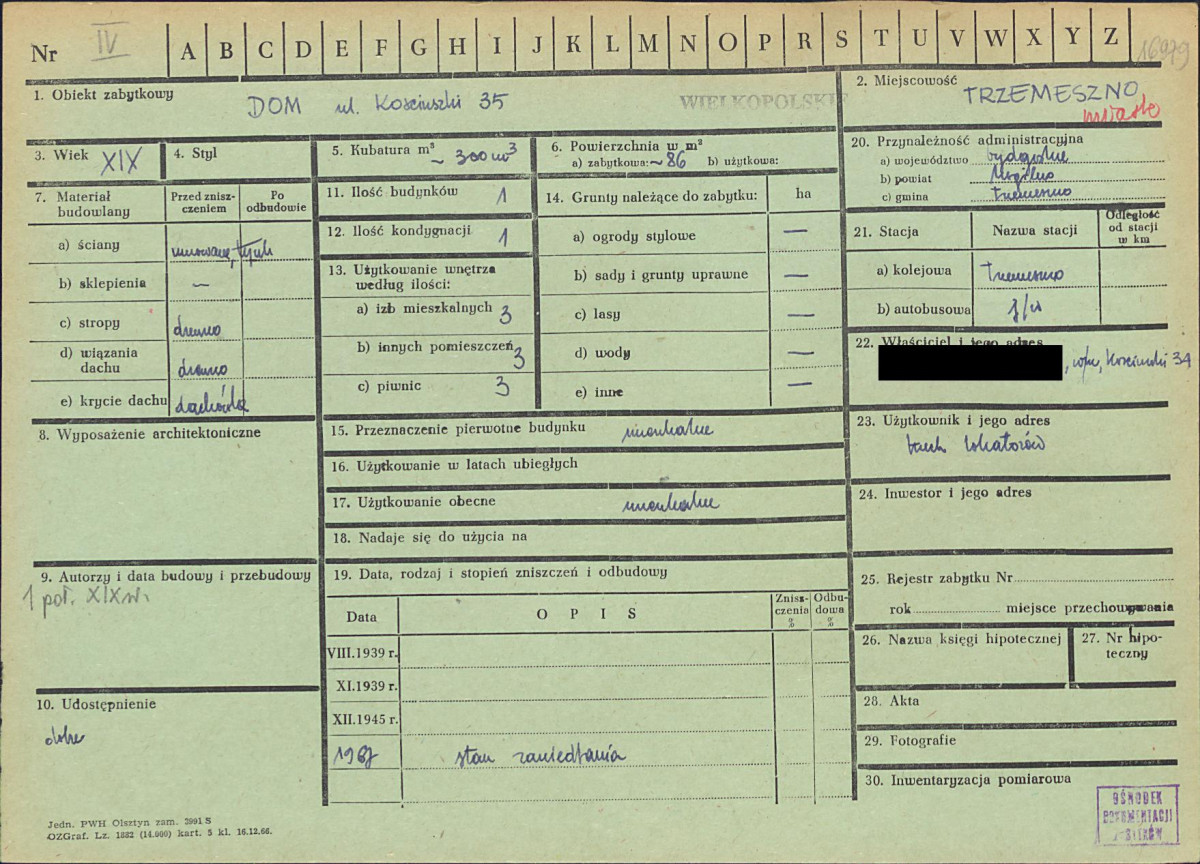 Nr IV A B C D E F G H I J K L M N O P R S T U V W X Y Z 16979
1. Obiekt zabytkowy
DOM ul. Kościuszki 35
WIELKOPOLSKIE
2. Miejscowość
TRZEMESZNO
miasto
3. Wiek XIX
4. Styl
5. Kubatura m³ ~ 300 m³
6. Powierzchnia w m²
a) zabytkowa: ~86 b) użytkowa:
7. Materiał budowlany
Przed zniszczeniem
Po odbudowie
a) ściany murowane, tynk
b) sklepienia —
c) stropy drewno
d) wiązania dachu drewno
e) krycie dachu dachówka
8. Wyposażenie architektoniczne
9. Autorzy i data budowy i przebudowy
1 poł. XIX w.
10. Udostępnienie
dobre
11. Ilość budynków 1
12. Ilość kondygnacji 1
13. Użytkowanie wnętrza według ilości:
a) izb mieszkalnych 3
b) innych pomieszczeń 3
c) piwnic 3
14. Grunty należące do zabytku: ha
a) ogrody stylowe —
b) sady i grunty uprawne —
c) lasy —
d) wody —
e) inne —
15. Przeznaczenie pierwotne budynku mieszkalne
16. Użytkowanie w latach ubiegłych
17. Użytkowanie obecne mieszkalne
18. Nadaje się do użycia na
19. Data, rodzaj i stopień zniszczeń i odbudowy
Data
O P I S
Zniszczenia %
Odbudowa %
VIII.1939 r.
XI.1939 r.
XII.1945 r.
1967 stan zaniedbania
20. Przynależność administracyjna
a) województwo bydgoskie
b) powiat Mogilno
c) gmina Trzemeszno
21. Stacja
Nazwa stacji
Odległość od stacji w km
a) kolejowa Trzemeszno
b) autobusowa j/w
22. Właściciel i jego adres
, Kościuszki 34
23. Użytkownik i jego adres
lokatorów
24. Inwestor i jego adres
25. Rejestr zabytku Nr
rok miejsce przechowywania
26. Nazwa księgi hipotecznej
27. Nr hipoteczny
28. Akta
29. Fotografie
30. Inwentaryzacja pomiarowa
OŚRODEK
DOKUMENTACJI
Jedn. PWH Olsztyn zam. 3991 S
OZGraf. Lz. 1882 (14.000) kart. 5 kl. 16.12.66.